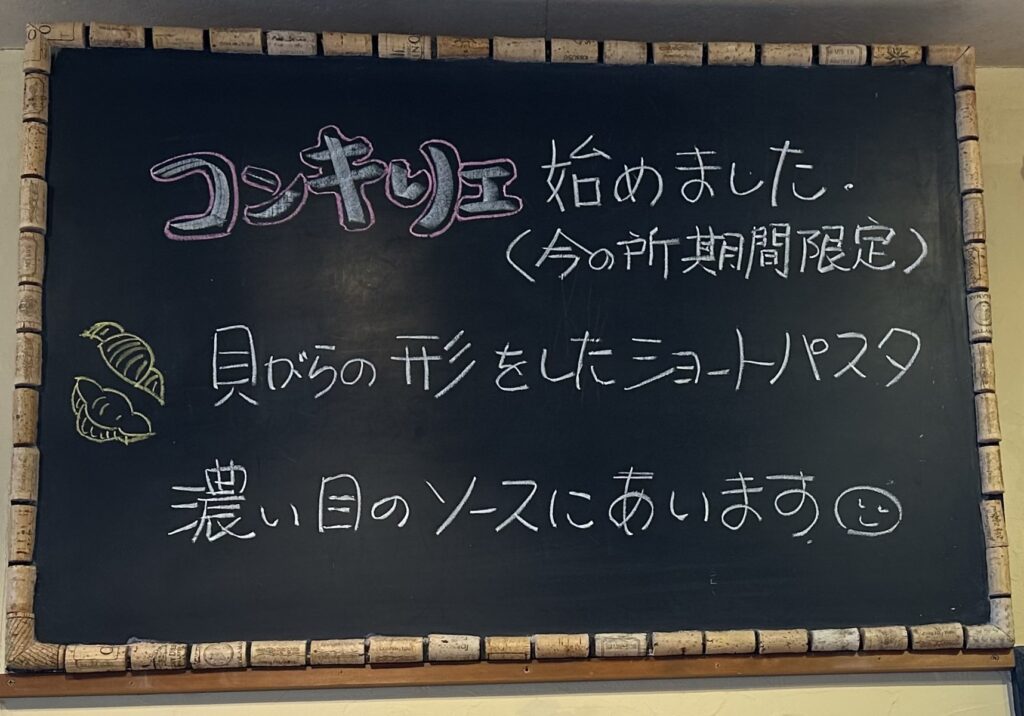 コンキリエ 始めました.
(今の所期間限定)
貝がらの形をしたショートパスタ
濃い目のソースにあいます